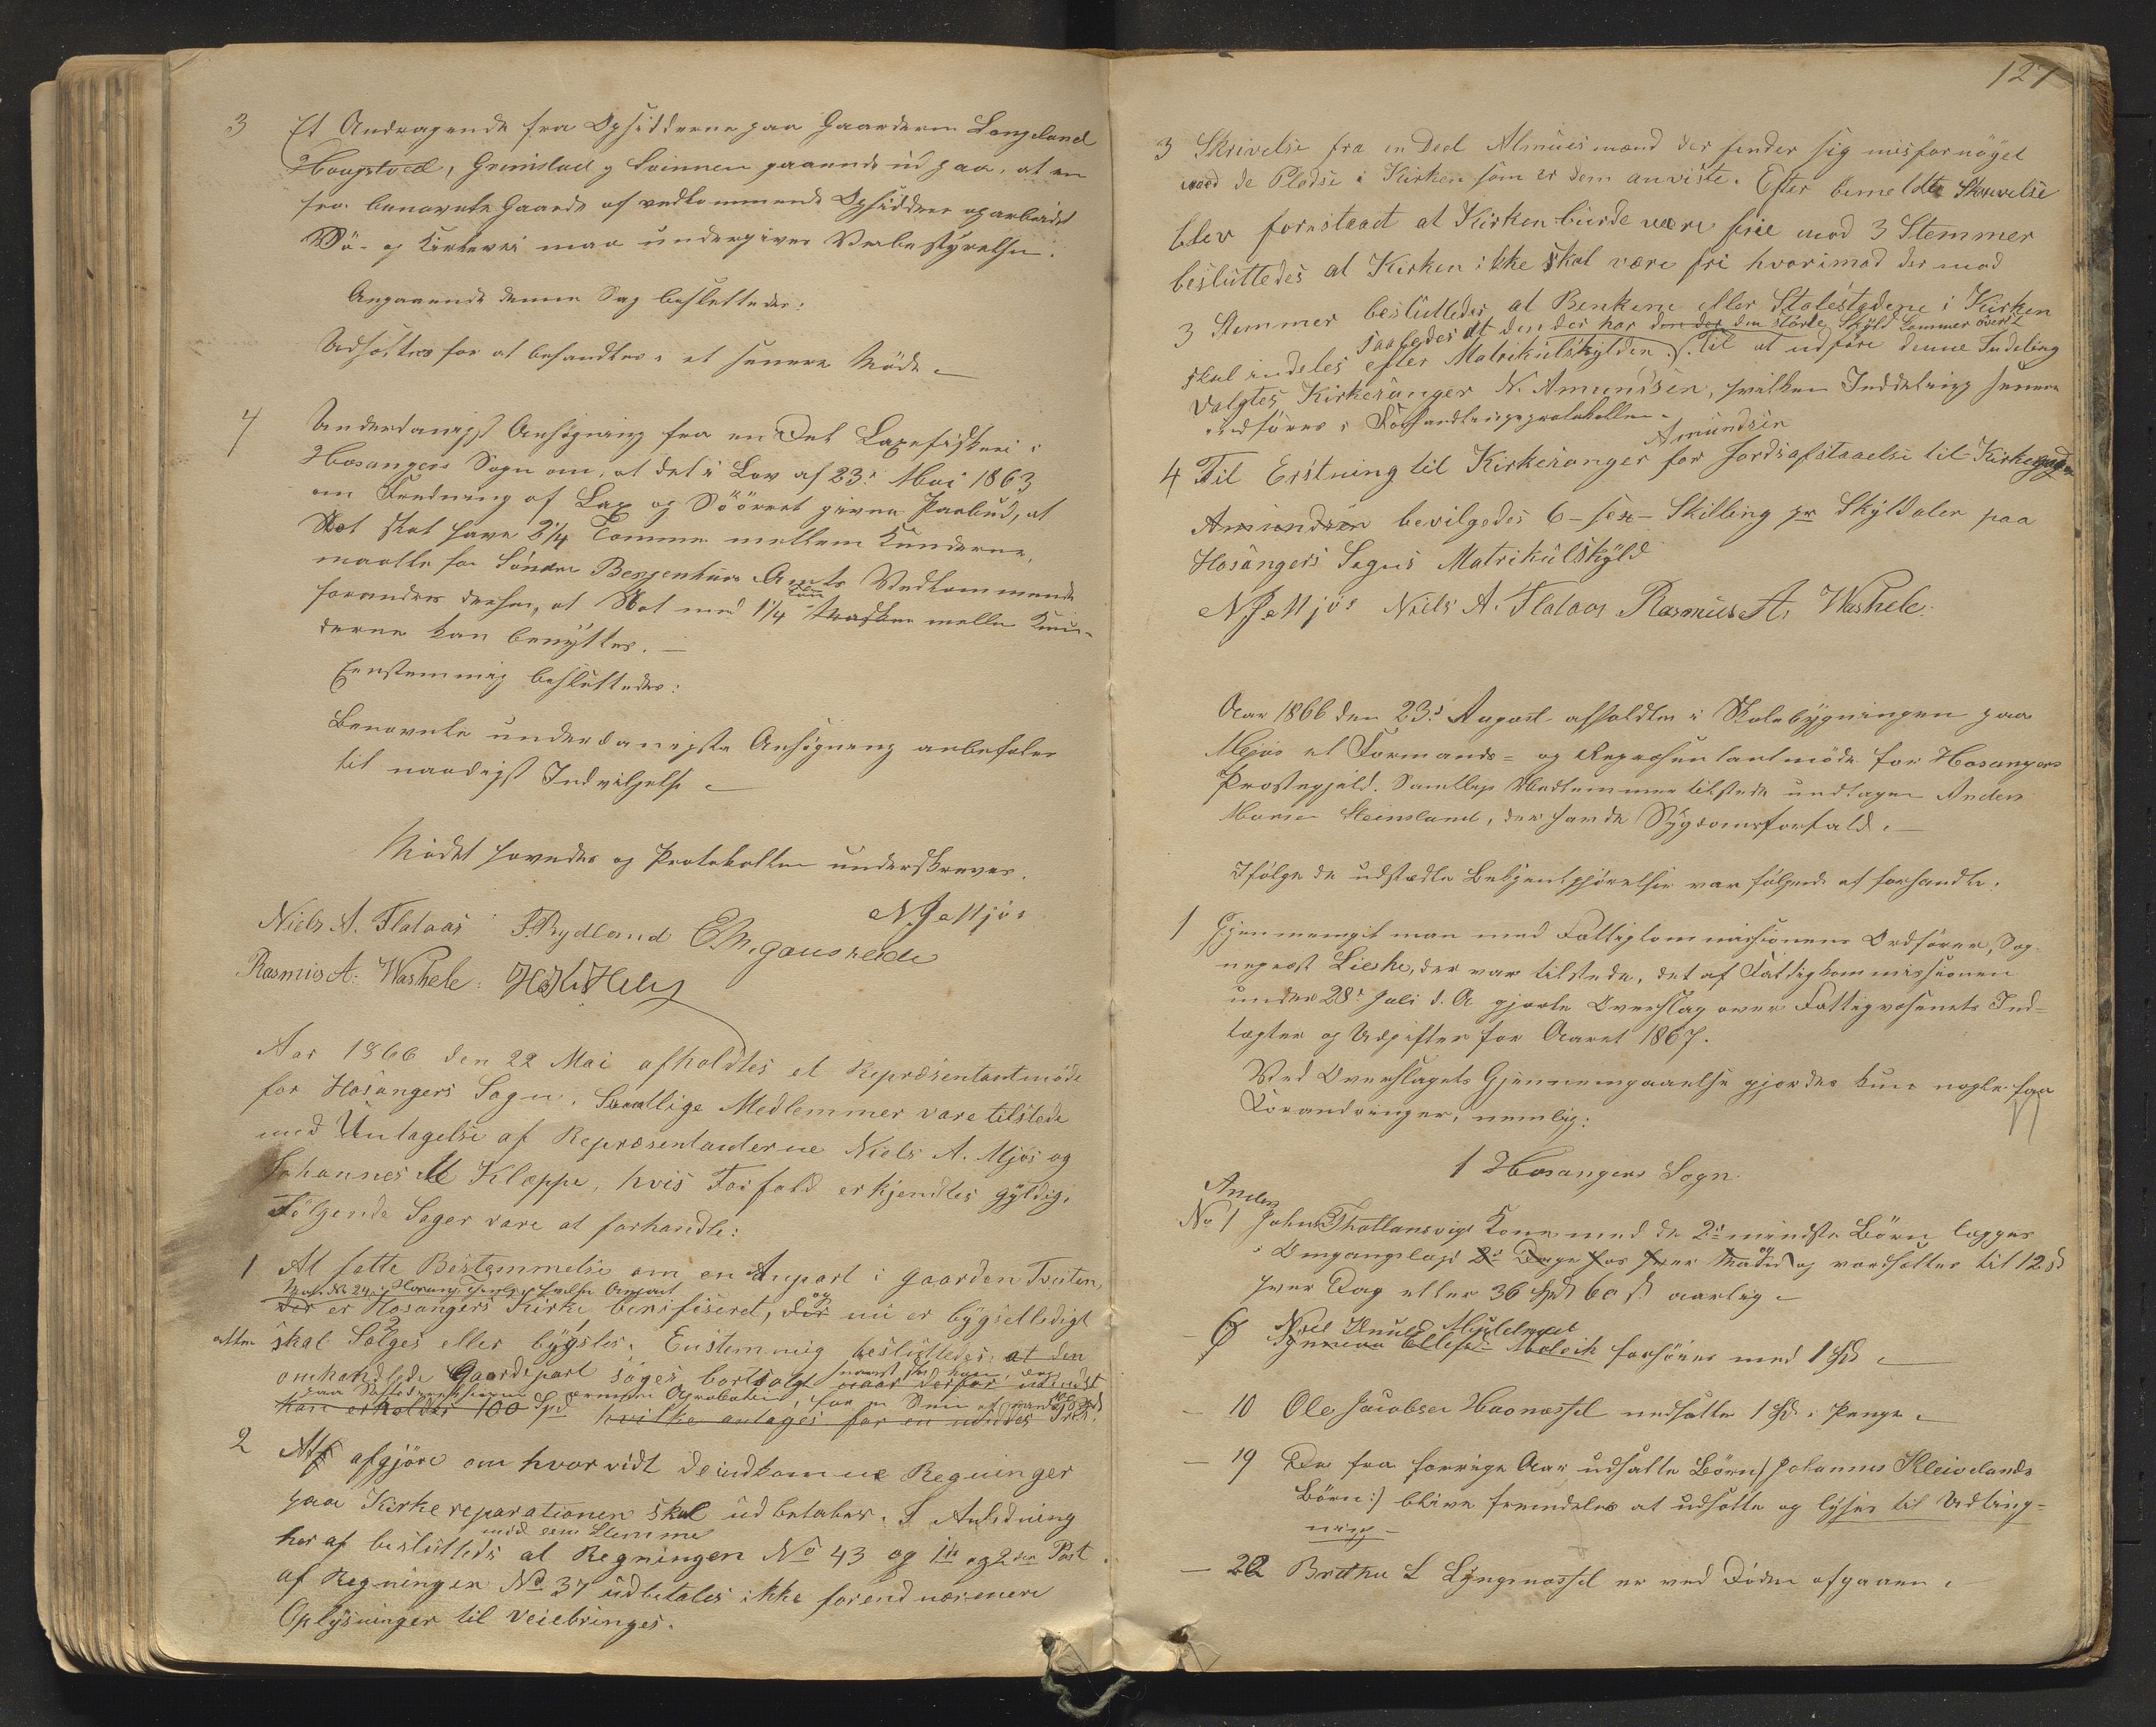 3 Et Andragende fra Opsidderne paa Gaardene Langeland
Hougstved, Grimstad og Toinnen gaaende ud paa, at en
fra benævnte Gaarde af vedkommende Opsiddere oparbeidet
Sø- og Kirkevei maa undergives Veibestyrelsen.
Angaaende denne Sag besluttedes:
Udsættes for at behandles i et senere Møde.
4 Underdanigst Ansøgning fra en Deel Laxefiskere i
Hosangers Sogn om, at det i Lov af 23de Mai 1863
om Fredning af Lax og Søørret givne Paabud, at
Not skal have 2 1/4 Tomme mellem Knuderne,
maatte for Søndre Bergenhus Amts Vedkommende
forandres derhen, at Not med 1 1/4 Tom mellem Knu-
derne kan benyttes. —
Eenstemmig besluttedes:
Benævnte underdanigste Ansøgning anbefales
til naadigst Indvilgelse
Mødet hævedes og Protokollen underskreves.
N. J. Mjøs
Niels A. Flataas F. Rydland E. M. Gausereide
Rasmus A. Washele
Aar 1866 den 22 Mai afholdtes et Repræsentantmøde
for Hosangers Sogn. Samtlige Medlemmer vare tilstede
med Untagelse af Repræsentanterne Niels A. Mjøs og
Johannes M Kleppe, hvis Forfald erkjendtes gyldig.
Følgende Sager vare at forhandle:
1 At fatte Bestemmelse om en Anpart i gaarden Tveiten,
der er Hosangers Kirke benifiseret, og nu er bygselledigt
skal Sælges eller bygsles. Enstemmig besluttedes at den
omhandlede Gaardepart søges bortsolgt naar derfor
kan erholdes 100 Spd hvilke antages for en
2 At afgjøre om hvorvidt de indkomne Regninger
paa Kirkereparationen skal udbetales. I Anledning
med een Stemme
her af besluttedes at Regningen No 43 og 1te og 2den Post
af Regningen No 37 udbetales ikke forend nærmere
Oplysninger til veiebringes.
127
3 Skrivelse fra en Deel Almuesmænd der finder sig misfornøget
med de Pladse i Kirken som er dem anviste. Efter bemeldte Skrivelse
blev forestaadt at Kirken burde være frie mod 3 Stemmer
besluttedes at Kirken ikke skal være fri hvorimod der mod
3 Stemmer besluttedes at Benkene eller Stolestadene i Kirken
saaledes at den der har den største Skyld kommer øverst
skal indeles efter Matrikulskylden. Til at udføre denne Indeling
valgtes Kirkesanger N. Amundsen, hvilken Inddeling senere
indføres i Forhandlingsprotokollen.
Amundsen
4 Til Erstning til Kirkesanger for Jordafstaaelse til Kirkegaden
Amundsen bevilgedes 6 - sex - Skilling pr Skylddaler paa
Hosangers Sogns Matrikulskyld
N. J. Mjøs Niels A. Flataas Rasmus A. Washele.
Aar 1866 den 23de August afholdtes i Skolebygningen paa
Mjøs et Formands- og Repræsentantmøde for Hosangers
Præstegjeld. Samtlige Medlemmer tilstede undtagen Anders
Monsen Steinsland, der havde Sygdomsforfald. —
Ifølge de udstædte Bekjentgjørelser var følgende at forhandle:
1 Gjennemgik man med Fattigkommissionens Ordfører, Sog-
nepræst Lieske, der var tilstede, det af Fattigkommissionen
under 28de Juli d. A gjorte Overslag over Fattigvæsenets Ind-
tægter og Udgifter for Aaret 1867.
Ved Overslagets Gjennemgaaelse gjordes kun nogle faa
Forandringer, nemlig:
1 Hosangers Sogn.
Anders
No 1 Johns Thollansvigs Kone med de 2de mindste Børn lægges
i Omgangslægd 2de Dage hos hver Mand og værdsættes til 12 s
hver Dag eller 36 Spd 60 s aarlig
- 6 Niel Knuds Mjeldenæs forhøies med 1 Spd
- 10 Ole Jacobsen Haanæsset nedsættes 1 Spd i Penge
- 19 De fra forrige Aar udsatte Børn (: Johannes Kleivelands
Børn:) blive fremdeles at udsætte og lyses til Udting-
ning
- 22 Brithe L Lyngnæsset er ved Døden afgaaen.